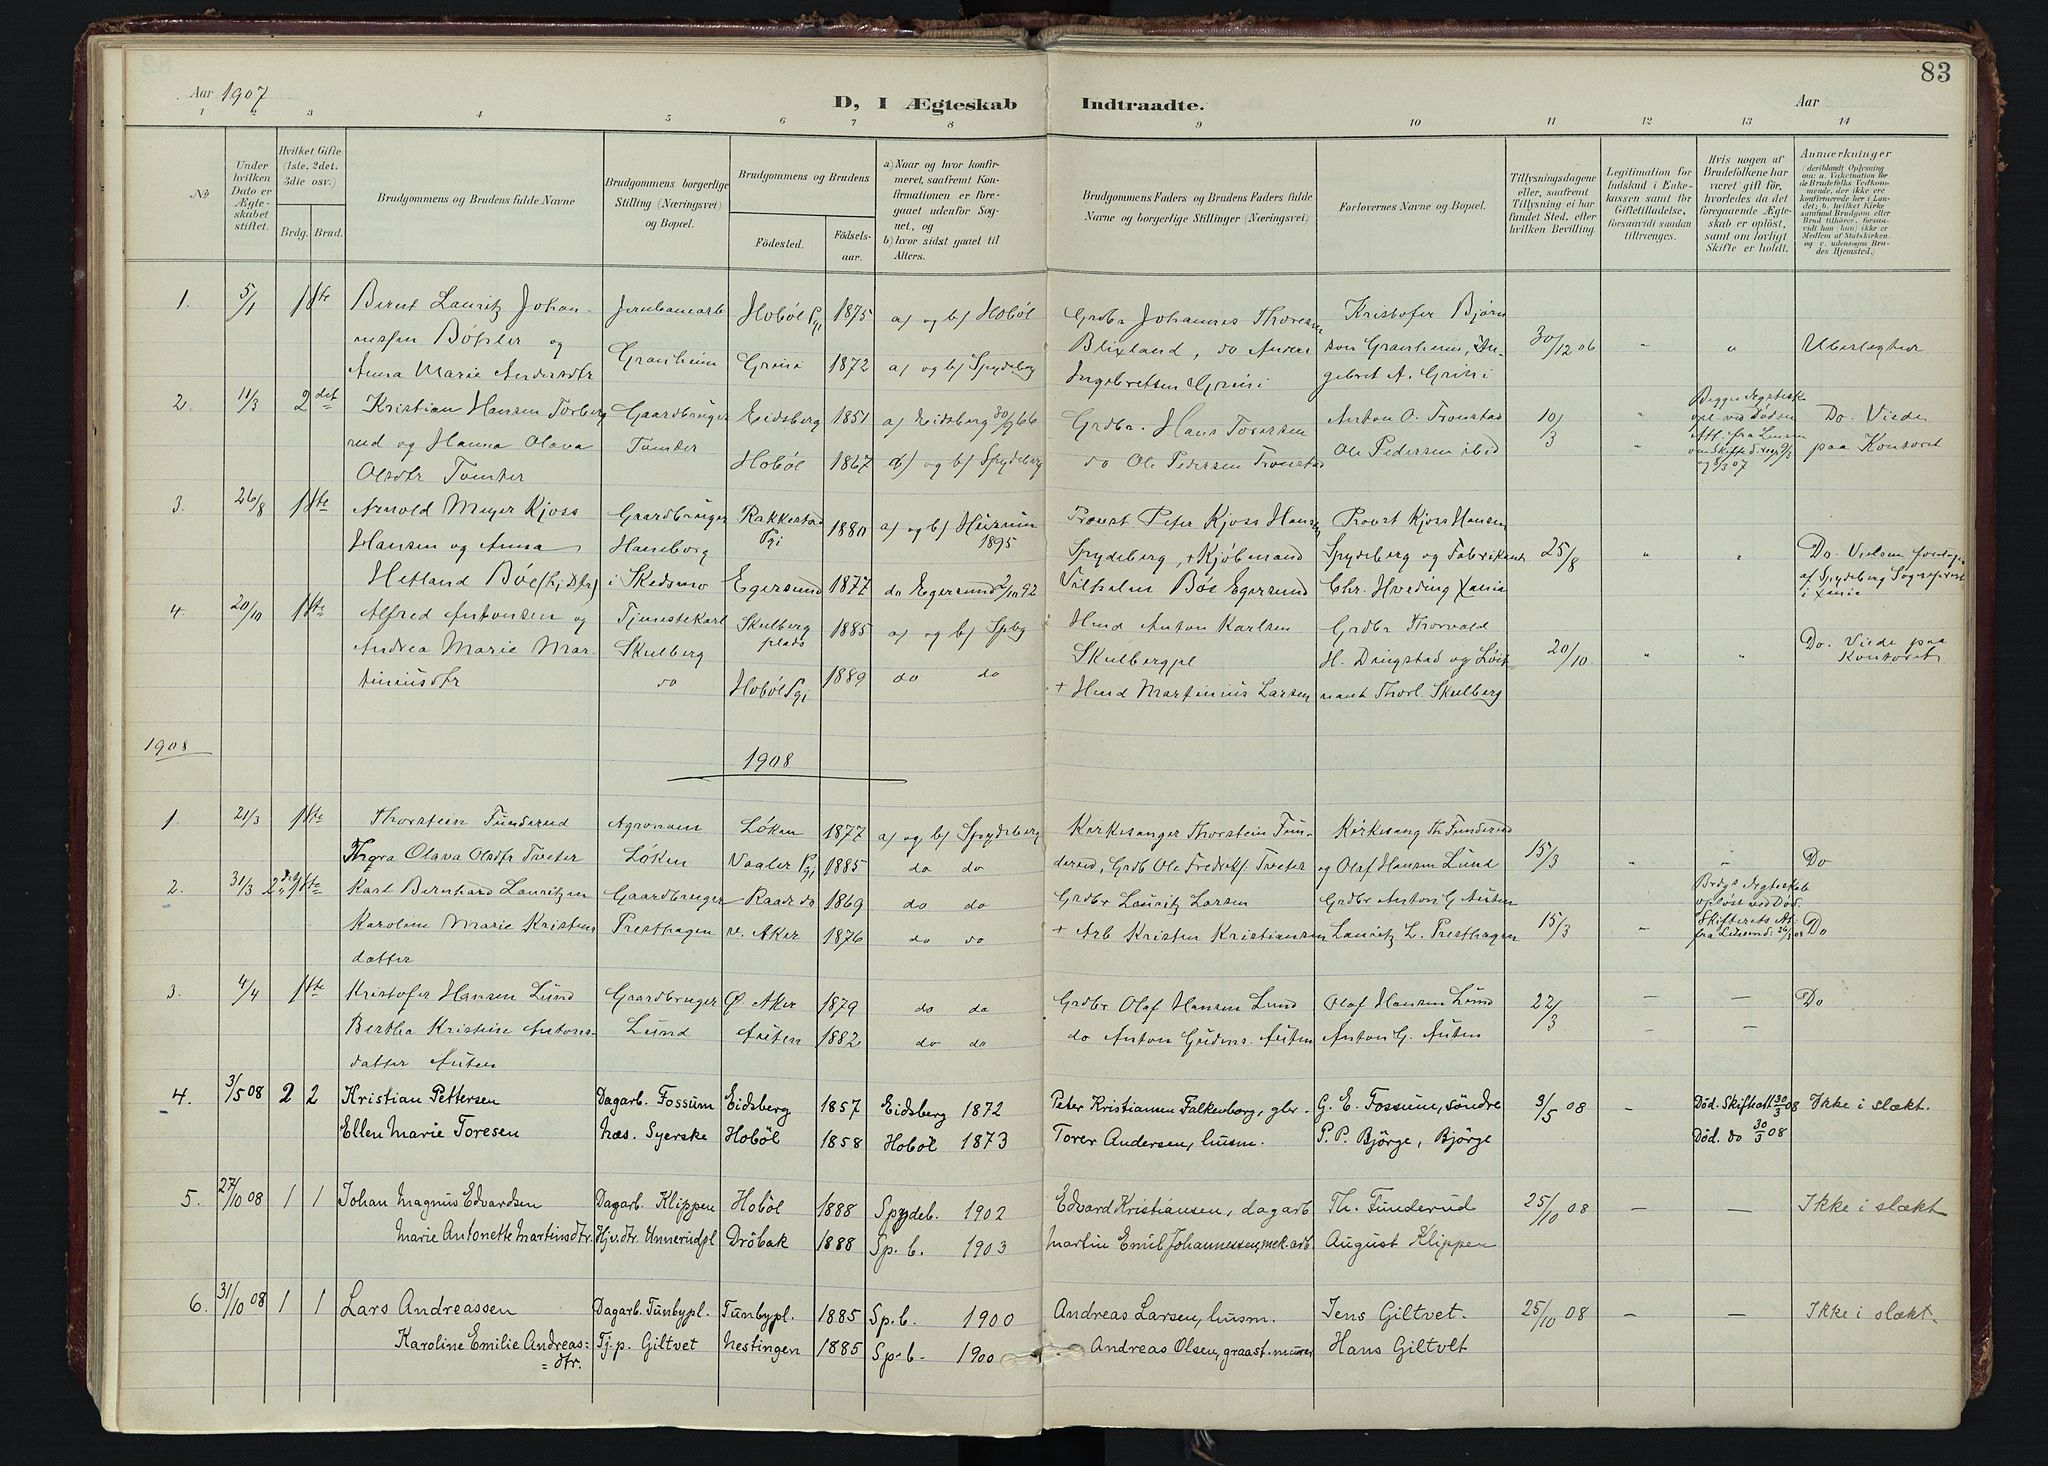 83
Aar 1907
D, I Ægteskab Indtraadte.
Aar
1 2 3 4 5 6 7 8 9 10 11 12 13 14
No.
Under hvilken Dato er Ægteskabet stiftet.
Hvilket Gifte (1ste, 2det. 3die osv.)
Brdg. Brud.
Brudgommens og Brudens fulde Navne
Brudgommens borgerlige Stilling (Næringsvei) og Bopæl.
Brudgommens og Brudens
Födested.
Födselsaar.
a) Naar og hvor konfirmeret, saafremt Konfirmationen er foregaaet udenfor Sognet, og
b) hvor sidst gaaet til Alters.
Brudgommens Faders og Brudens Faders fulde Navne og borgerlige Stillinger (Næringsvei)
Forlovernes Navne og Bopæl.
Tillysningsdagene eller, saafremt Tillysning ei har fundet Sted, efter hvilken Bevilling.
Legitimation for Indskud i Enkekassen samt for Giftetilladelse, forsaavidt saadan tiltrænges.
Hvis nogen af Brudefolkene har været gift för, hvorledes da det foregaaende Ægteskab er oplöst, samt om lovligt Skifte er holdt.
Anmærkninger
(deriblandt Oplysning om: a. Vakcination för de Brudefolks Vedkommende, der ikke ere konfirmerede her i Landet; b. hvilket Kirkesamfund Brudgom eller Brud tilhörer, forsaavidt han (hun) ikke er Medlem af Statskirken. og c. udensogns Brudes Hjemsted.)
1. 5/1 1 1ste Bernt Lauritz Johan- Jernbanearb Hobøl Pgj 1875 a) og b) Hobøl Grdbr Johannes Thoresen Kristofer Bjørn
nessen Bøhler og Granheim Blixland, do Anders son Granheim, In- 30/12 06 " " Ubeslægtede
Anna Marie Andersdtr Grini 1872 a) og b) Spydebg Ingebretsen Grini gebret A. Grini
2. 11/3 2 det Kristian Hansen Torberg Gaardbruger Eidsberg 1851 a) Eidsberg 30/9 66 Grdbr. Hans Torersen Anton O. Tronstad 10/3 " Begges Ægtesk. opl. ved Døden Do. Viede
rud og Hanna Olava Tomter Hobøl 1867 a) og b) Spydeberg do Ole Pedersen Tronstad Ole Pedersen ibid " Att. fra Lensm om Skifte paa Kontoret
Olsdtr Tomter
3. 26/8 1 1ste Arnold Meyer Kjoss Gaardbruger Rakkestad Pgj 1880 a) og b) Hurum 1895 Provst Peter Kjoss Hansen Provst Kjoss Hansen
Hansen og Anna Haneborg Spydeberg, + Kjøbmand Spydeberg og Fabrikant 25/8 " " Do. Vielsen foretaget
Hetland Böe (Lj. Dtr) i Skedsmo Egersund 1877 do Egersund 2/10 92 Vilhelm Böe Egersund Chr. Hveding Xania af Spydeberg Sogneprest i Xania
4. 20/10 1ste Alfred Antonsen og Tjenestekarl Skulberg plads 1885 a) og b) Spbg Hmd Anton Karlsen Grdbr Thorvald
Andrea Marie Mar- Skulberg Skulbergpl H. Dingstad og Løit- 20/10 " " Do. Viede paa Kontoret
tiniusdtr do Hobøl Pgj 1889 do do + Hmd Martinius Larsen nant Thorl. Skulberg
1908
1908
1. 21/3 1ste Thorstein Funderud Agronom Løken 1877 a) og b) Spydeberg Kirkesanger Thorstein Fun- Kirkesang Th Funderud
Thora Olava Olsdtr Tveter Løken Vaaler Pgj 1885 do do derud, Grdb Ole Fredriks. Tveter og Olaf Hansen Lund 15/3 " " Do
2. 31/3 2 1ste Karl Bernhard Lauritzen Gaardbruger Raade 1869 do do Grdbr Lauritz Larsen Grdbr Anton G Auten Brdgs Ægteskab opløst ved Død.
Karoline Marie Kristens Presthagen v. Aker 1876 do do + Arb Kristen Kristiansen Lauritz L. Presthagen 15/3 - Skifterets At. fra Lensmd: Do
datter
3. 4/4 1ste Kristofer Hansen Lund Gaardbruger Ø. Aker 1879 do do Grdbr Olaf Hansen Lund Olaf Hansen Lund 22/3 - - Do
Bertha Kristine Antons- Lund Auten 1882 do do do Anton Gudms. Auten Anton G. Auten - -
datter Auten
4. 3/5 08 2 2 Kristian Pettersen Dagarb. Fossum Eidsberg 1857 Eidsberg 1872 Peter Kristiansen Falkenborg, gbr. G. E. Fossum, söndre 3/5 08 - Död. Skifteatt 30/3 08 Ikke i slækt.
Ellen Marie Toresen Næs. Syerske Hoböl 1858 Hoböl 1873 Torer Andersen, husm. P. P. Björge, Björge Död. do 30/3 08
5. 27/10 08 1 1 Johan Magnus Edvardsen Dagarb. Klippen Hoböl 1888 Spydeb. 1902 Edvard Kristiansen, dagarb. Th. Funderud 25/10 08 - - Ikke i slækt
Marie Antonette Martinsdtr. Hjv. dtr. Unnerudpl Dröbak 1888 Sp. b. 1903 Martin Emil Johannessen, mek. arb. August Klippen
6. 31/10 08 1 1 Lars Andreassen Dagarb. Tunbypl. Tunbypl. 1885 Sp. b. 1900 Andreas Larsen, husm. Jens Giltvet. 25/10 08 - - Ikke i slækt.
Karoline Emilie Andreas= Tj. p. Giltvet Nestingen 1885 Sp. b. 1900 Andreas Olsen, graast. murer Hans Giltvet
=dtr.